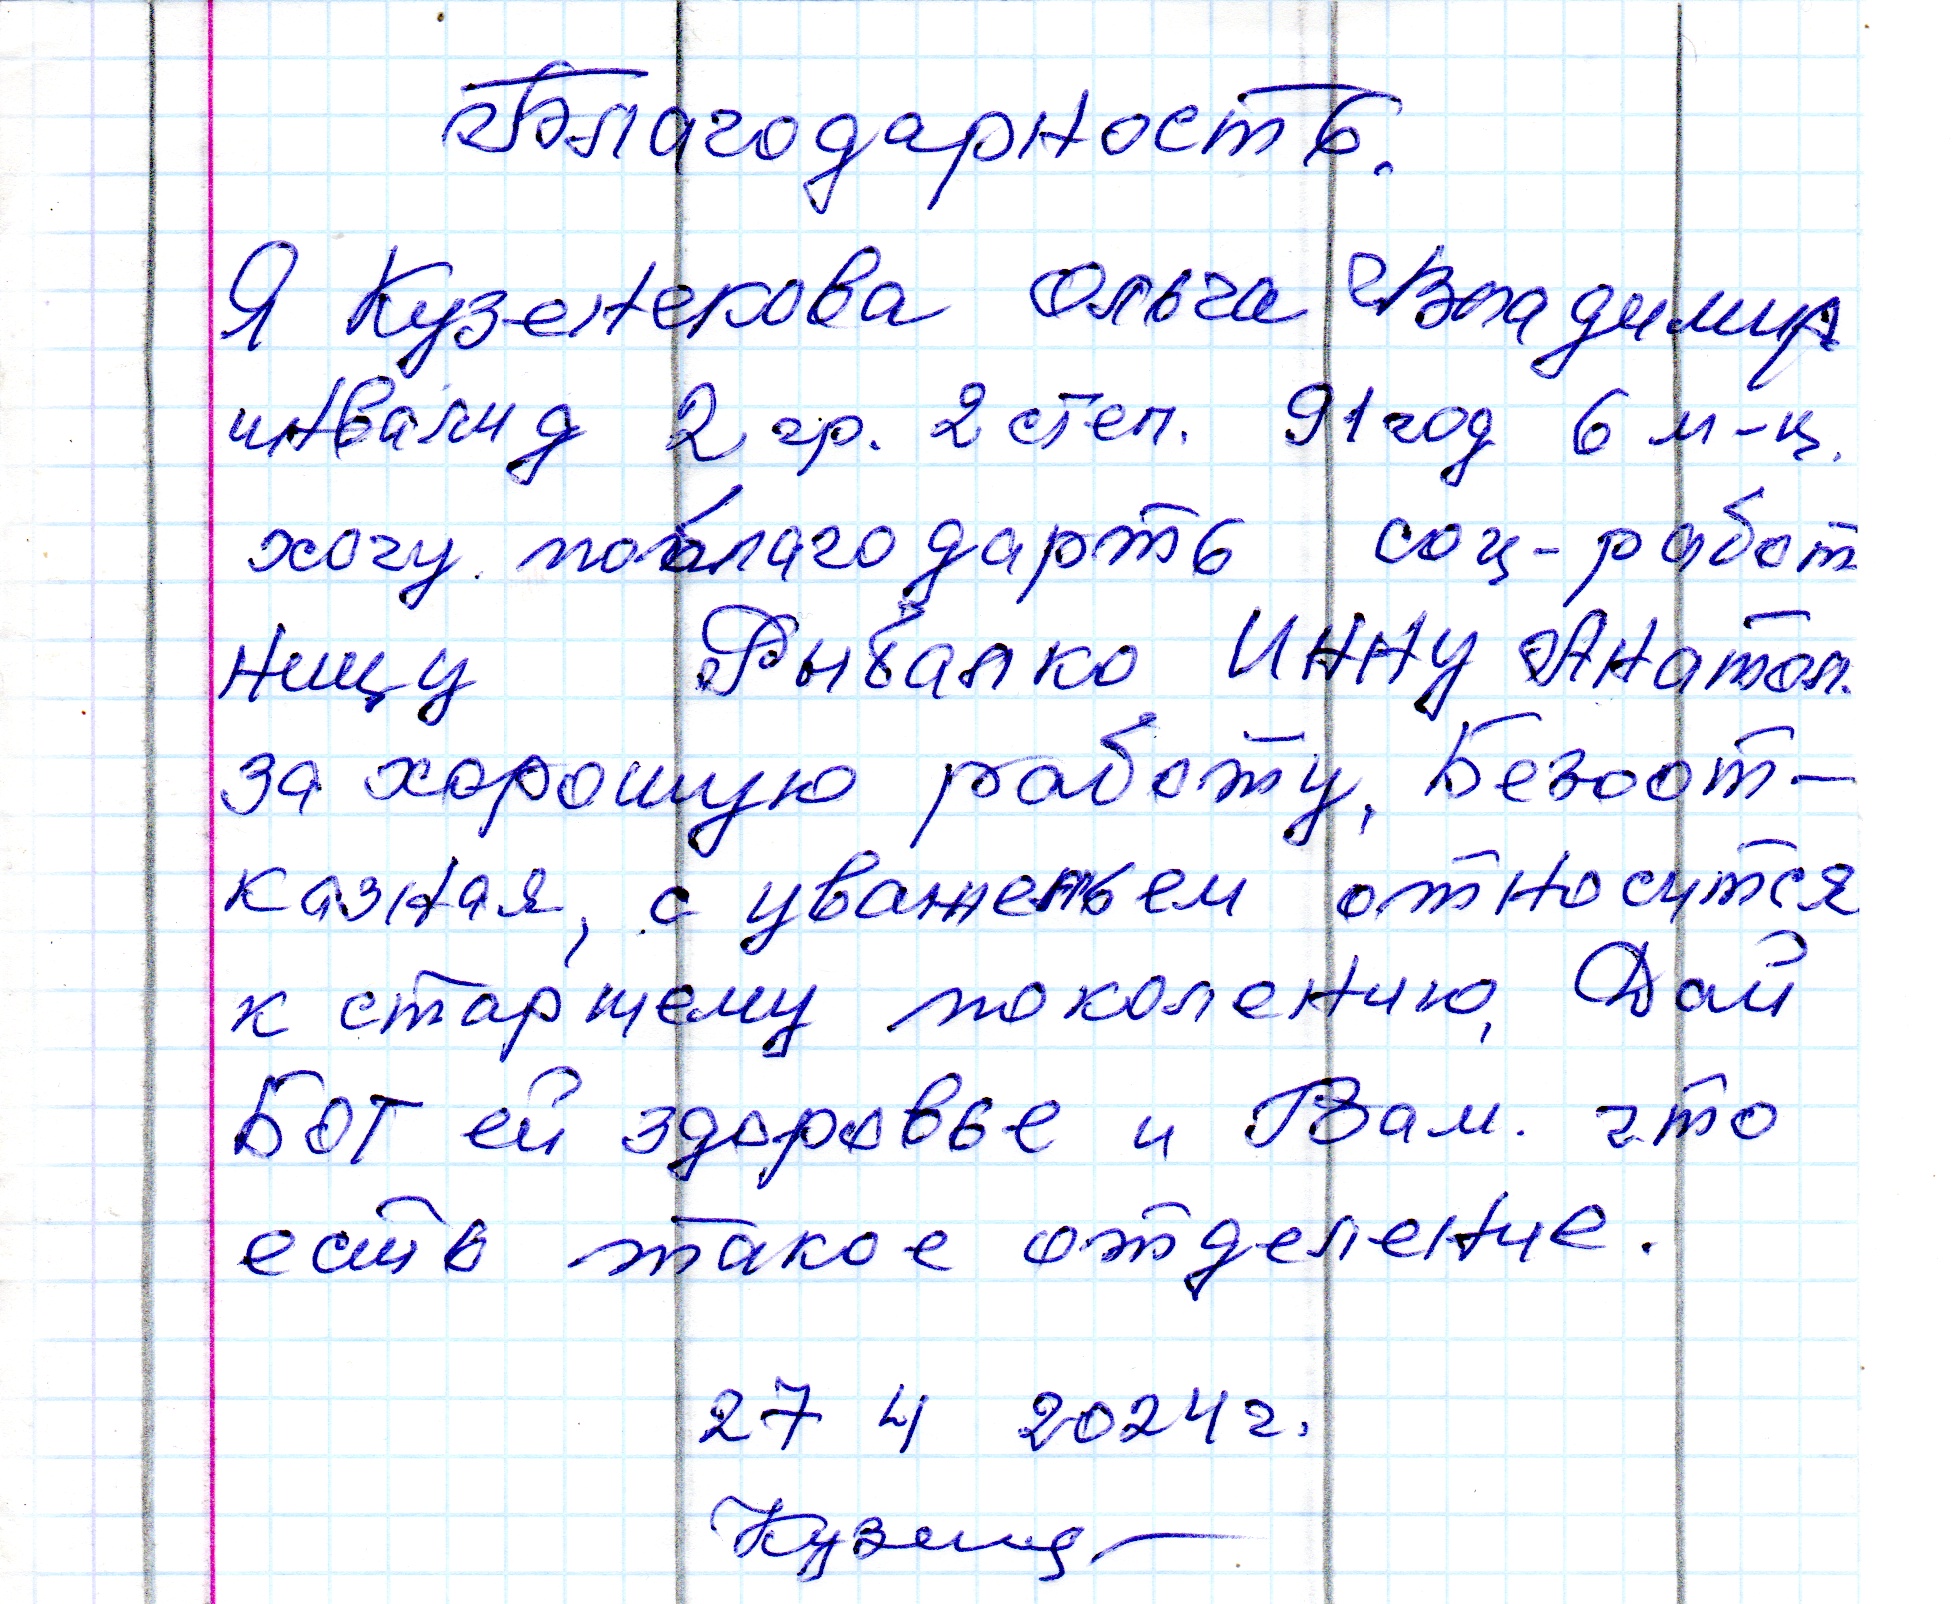 Благодарность.
Я Кузенекова Ольга Владимир
инвалид 2 гр. 2 степ. 91 год 6 м-ц.
хочу поблагодарть соц-работ
ницу Рыбалко Инну Анатол.
за хорошую работу, Безоот-
казная, с уваженьем относится
к старшему поколению, Дай
Бог ей здоровье и Вам. что
есть такое отделение.
27 4 2024 г.